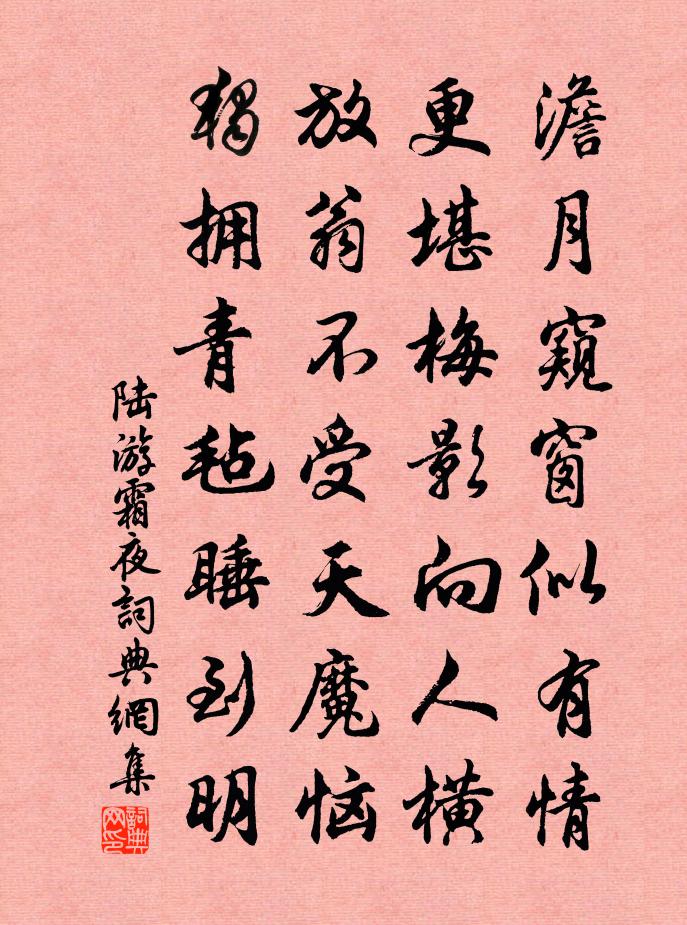 澹月窺窗似有情
更堪梅影向人橫
放翁不受天魔恼
独拥青毡睡到明
陆游霜夜詞典網集
詞典网印